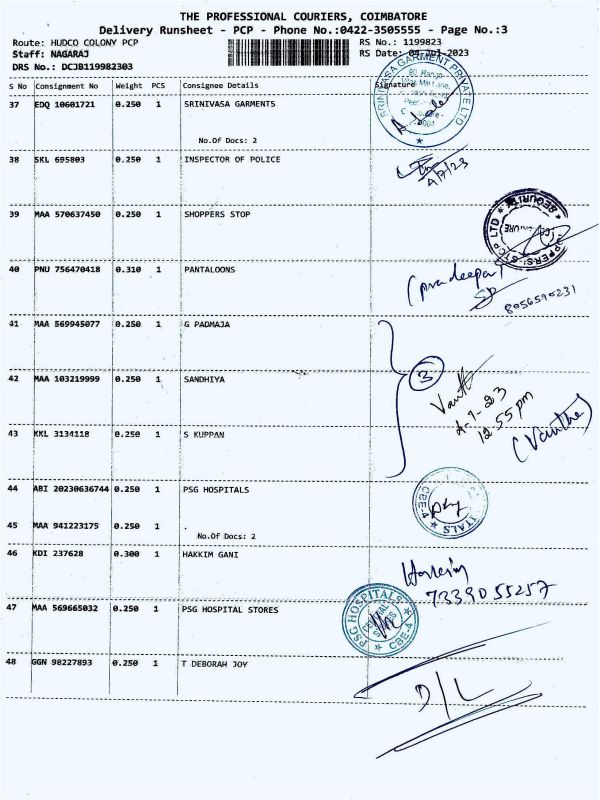 THE PROFESSIONAL COURIERS, COIMBATORE
Delivery Runsheet - PCP - Phone No.:0422-3505555 - Page No.:3
Route: HUDCO COLONY PCP
RS No.: 1199823
Staff: NAGARAJ
RS Date: 04-Jul-2023
DRS No.: DCJB119982303
S No Consignment No Weight PCS Consignee Details Signature
37 EDQ 10601721 0.250 1 SRINIVASA GARMENTS
No.Of Docs: 2
SRINIVASA GARMENT PRIVATE LTD
38 SKL 695803 0.250 1 INSPECTOR OF POLICE
4/7/23
39 MAA 570637450 0.250 1 SHOPPERS STOP
SECURITY
40 PNU 756470418 0.310 1 PANTALOONS
(pradeepa)
8056590231
41 MAA 569945077 0.250 1 G PADMAJA
3
42 MAA 103219999 0.250 1 SANDHIYA
4-7-23
12.55pm
43 KKL 3134118 0.250 1 S KUPPAN
(Vantha)
44 ABI 20230636744 0.250 1 PSG HOSPITALS
CBE-4
45 MAA 941223175 0.250 1 .
No.Of Docs: 2
46 KDI 237628 0.300 1 HAKKIM GANI
7339055257
47 MAA 569665032 0.250 1 PSG HOSPITAL STORES
PSG HOSPITALS
CENTRAL STORES
CBE-4
48 GGN 98227893 0.250 1 T DEBORAH JOY
D/L